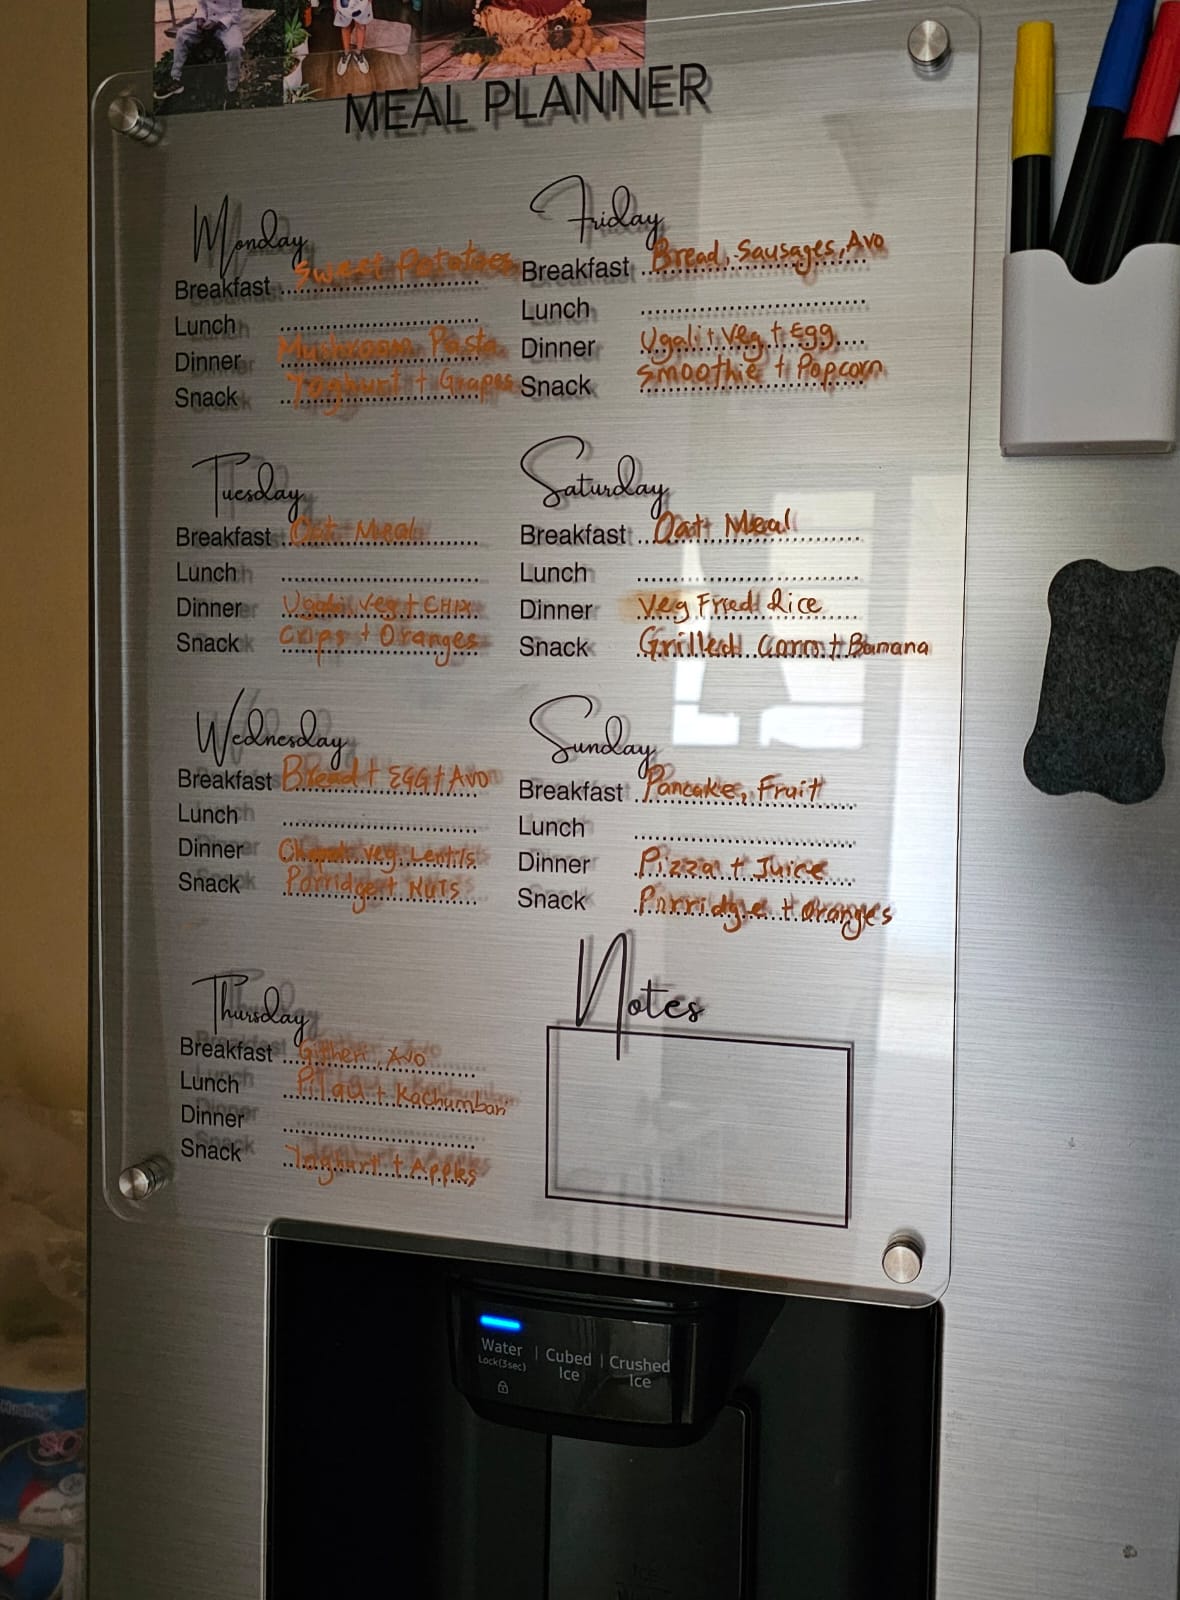 MEAL PLANNER
Monday
Breakfast Sweet Potatoes
Lunch
Dinner Mushroom Pasta
Snack Yoghurt + Grapes
Tuesday
Breakfast Oat Meal
Lunch
Dinner Ugali Veg +
Snack Crips + Oranges
Wednesday
Breakfast Bread + EGG + Avo
Lunch
Dinner Veg, Lentils
Snack Porridge + Nuts
Thursday
Breakfast , Avo
Lunch Pilau + Kachumbari
Dinner
Snack Yoghurt + Apples
Friday
Breakfast Bread, Sausages, Avo
Lunch
Dinner Ugali + Veg + Egg
Snack Smoothie + Popcorn
Saturday
Breakfast Oat Meal
Lunch
Dinner Veg Fried Rice
Snack Grilled Corn + Banana
Sunday
Breakfast Pancake, Fruit
Lunch
Dinner Pizza + Juice
Snack Porridge + Oranges
Notes
Water | Cubed Ice | Crushed Ice
Lock(3sec)